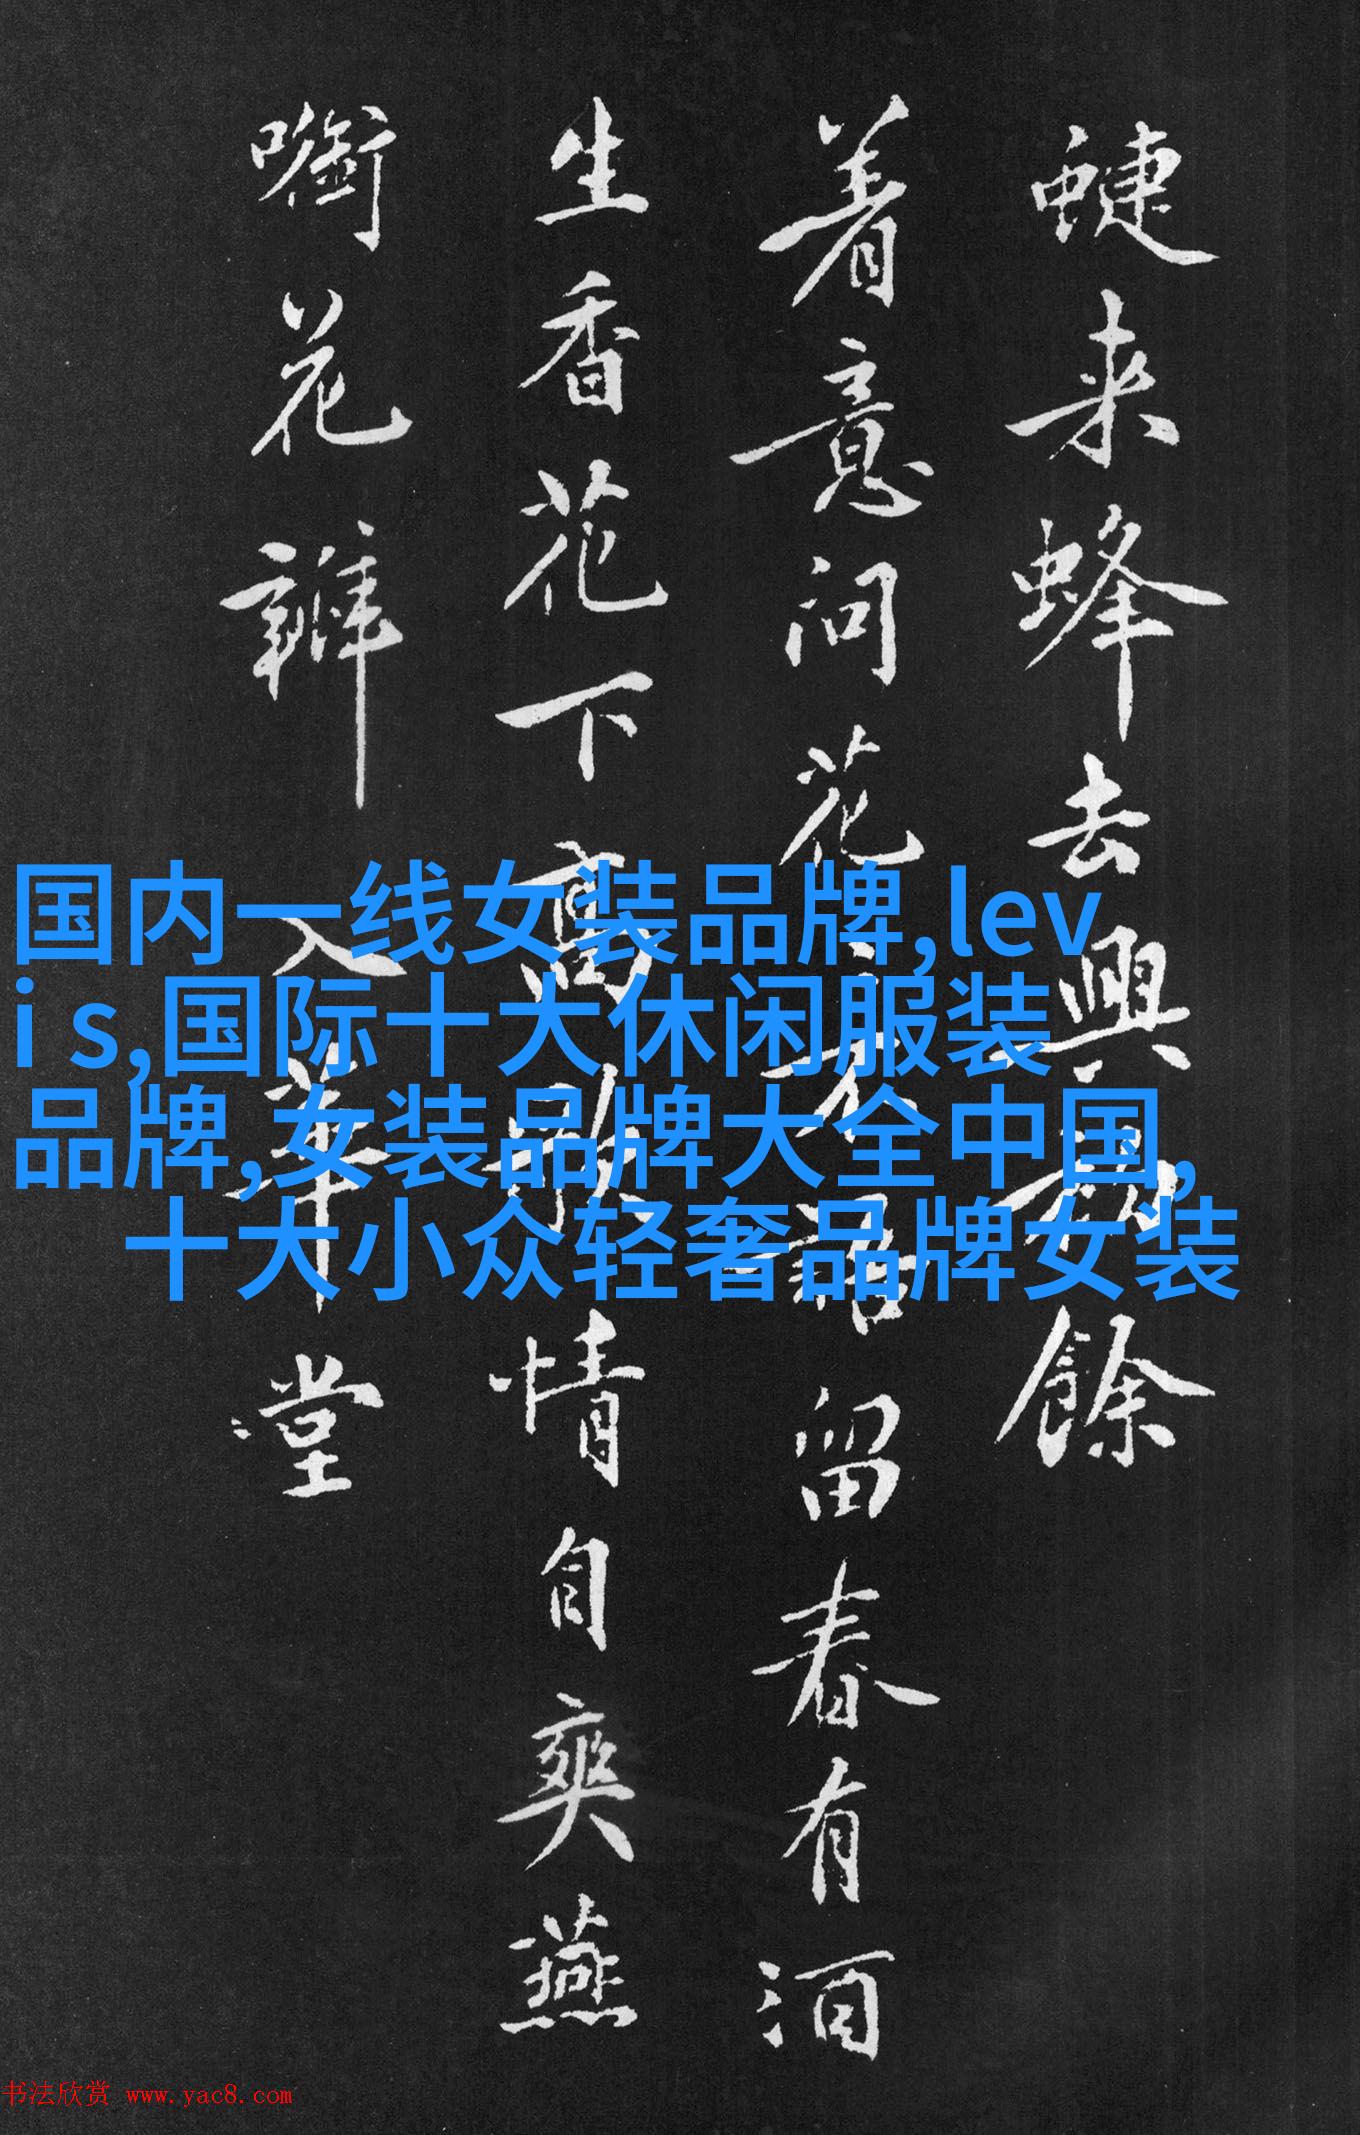 蜨来蜂去興餘
着意问花不語留春有酒
生香花下高歌情自爽燕
花瓣入華堂
国内一线女装品牌,lev
i s,国际十大休闲服装
品牌,女装品牌大全中国,
十大小众轻奢品牌女装
书法欣赏 www.yac8.com